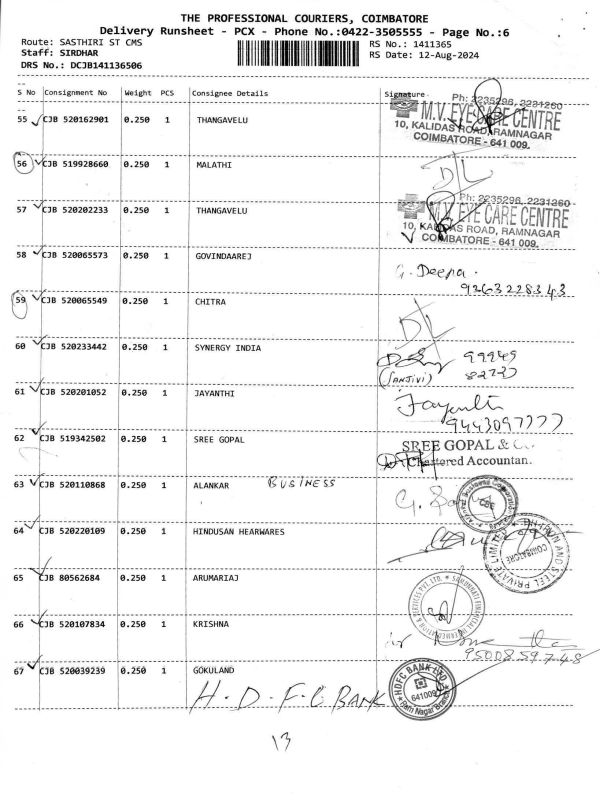 THE PROFESSIONAL COURIERS, COIMBATORE
Delivery Runsheet - PCX - Phone No.:0422-3505555 - Page No.:6
Route: SASTHIRI ST CMS RS No.: 1411365
Staff: SIRDHAR RS Date: 12-Aug-2024
DRS No.: DCJB141136506
S No Consignment No Weight PCS Consignee Details Signature
Ph: 2235296, 2231260
55 CJB 520162901 0.250 1 THANGAVELU M.V. EYE CARE CENTRE
10, KALIDAS ROAD, RAMNAGAR
COIMBATORE - 641 009.
56 CJB 519928660 0.250 1 MALATHI DL
Ph: 2235296, 2231260
57 CJB 520202233 0.250 1 THANGAVELU M.V. EYE CARE CENTRE
10, KALIDAS ROAD, RAMNAGAR
COIMBATORE - 641 009.
58 CJB 520065573 0.250 1 GOVINDAAREJ G. Deepa.
9263228343
59 CJB 520065549 0.250 1 CHITRA DL
60 CJB 520233442 0.250 1 SYNERGY INDIA 99949
(SANJIVI) 82737
61 CJB 520201052 0.250 1 JAYANTHI Jayanthi
9443097777
62 CJB 519342502 0.250 1 SREE GOPAL SREE GOPAL & Co.
Chartered Accountan.
63 CJB 520110868 0.250 1 ALANKAR BUSINESS G.
CBE
64 CJB 520220109 0.250 1 HINDUSAN HEARWARES
IRON AND STEEL PRIVATE LIMITED
COIMBATORE
65 CJB 80562684 0.250 1 ARUMARIAJ
66 CJB 520107834 0.250 1 KRISHNA
9500859748
67 CJB 520039239 0.250 1 GOKULAND
H.D.F.C BANK
HDFC BANK LTD
641009
Ram Nagar Branch
13